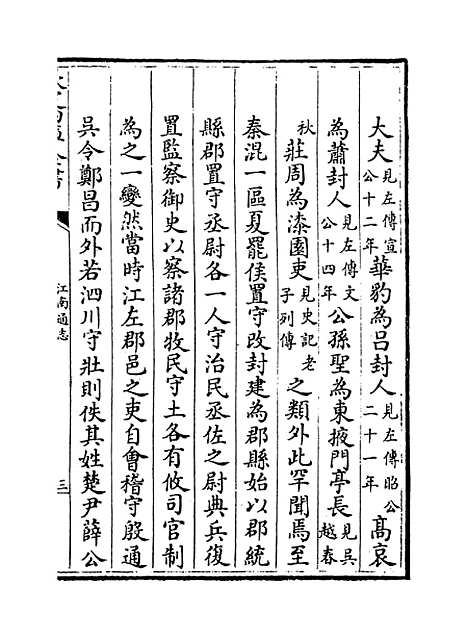 大夫見左傳宣公十二年華豹為呂封人見左傳昭公二十一年高哀
為蕭封人見左傳文公十四年公孫聖為東掖門亭長見吳越春
秋莊周為漆園吏見史記老子列傳之類外此罕聞焉至
秦混一區夏罷侯置守改封建為郡縣始以郡統
縣郡置守丞尉各一人守治民丞佐之尉典兵復
置監察御史以察諸郡牧民守土各有攸司官制
為之一變然當時江左郡邑之吏自會稽守殷通
吳令鄭昌而外若泗川守壯則佚其姓楚尹薛公
江南通志
三